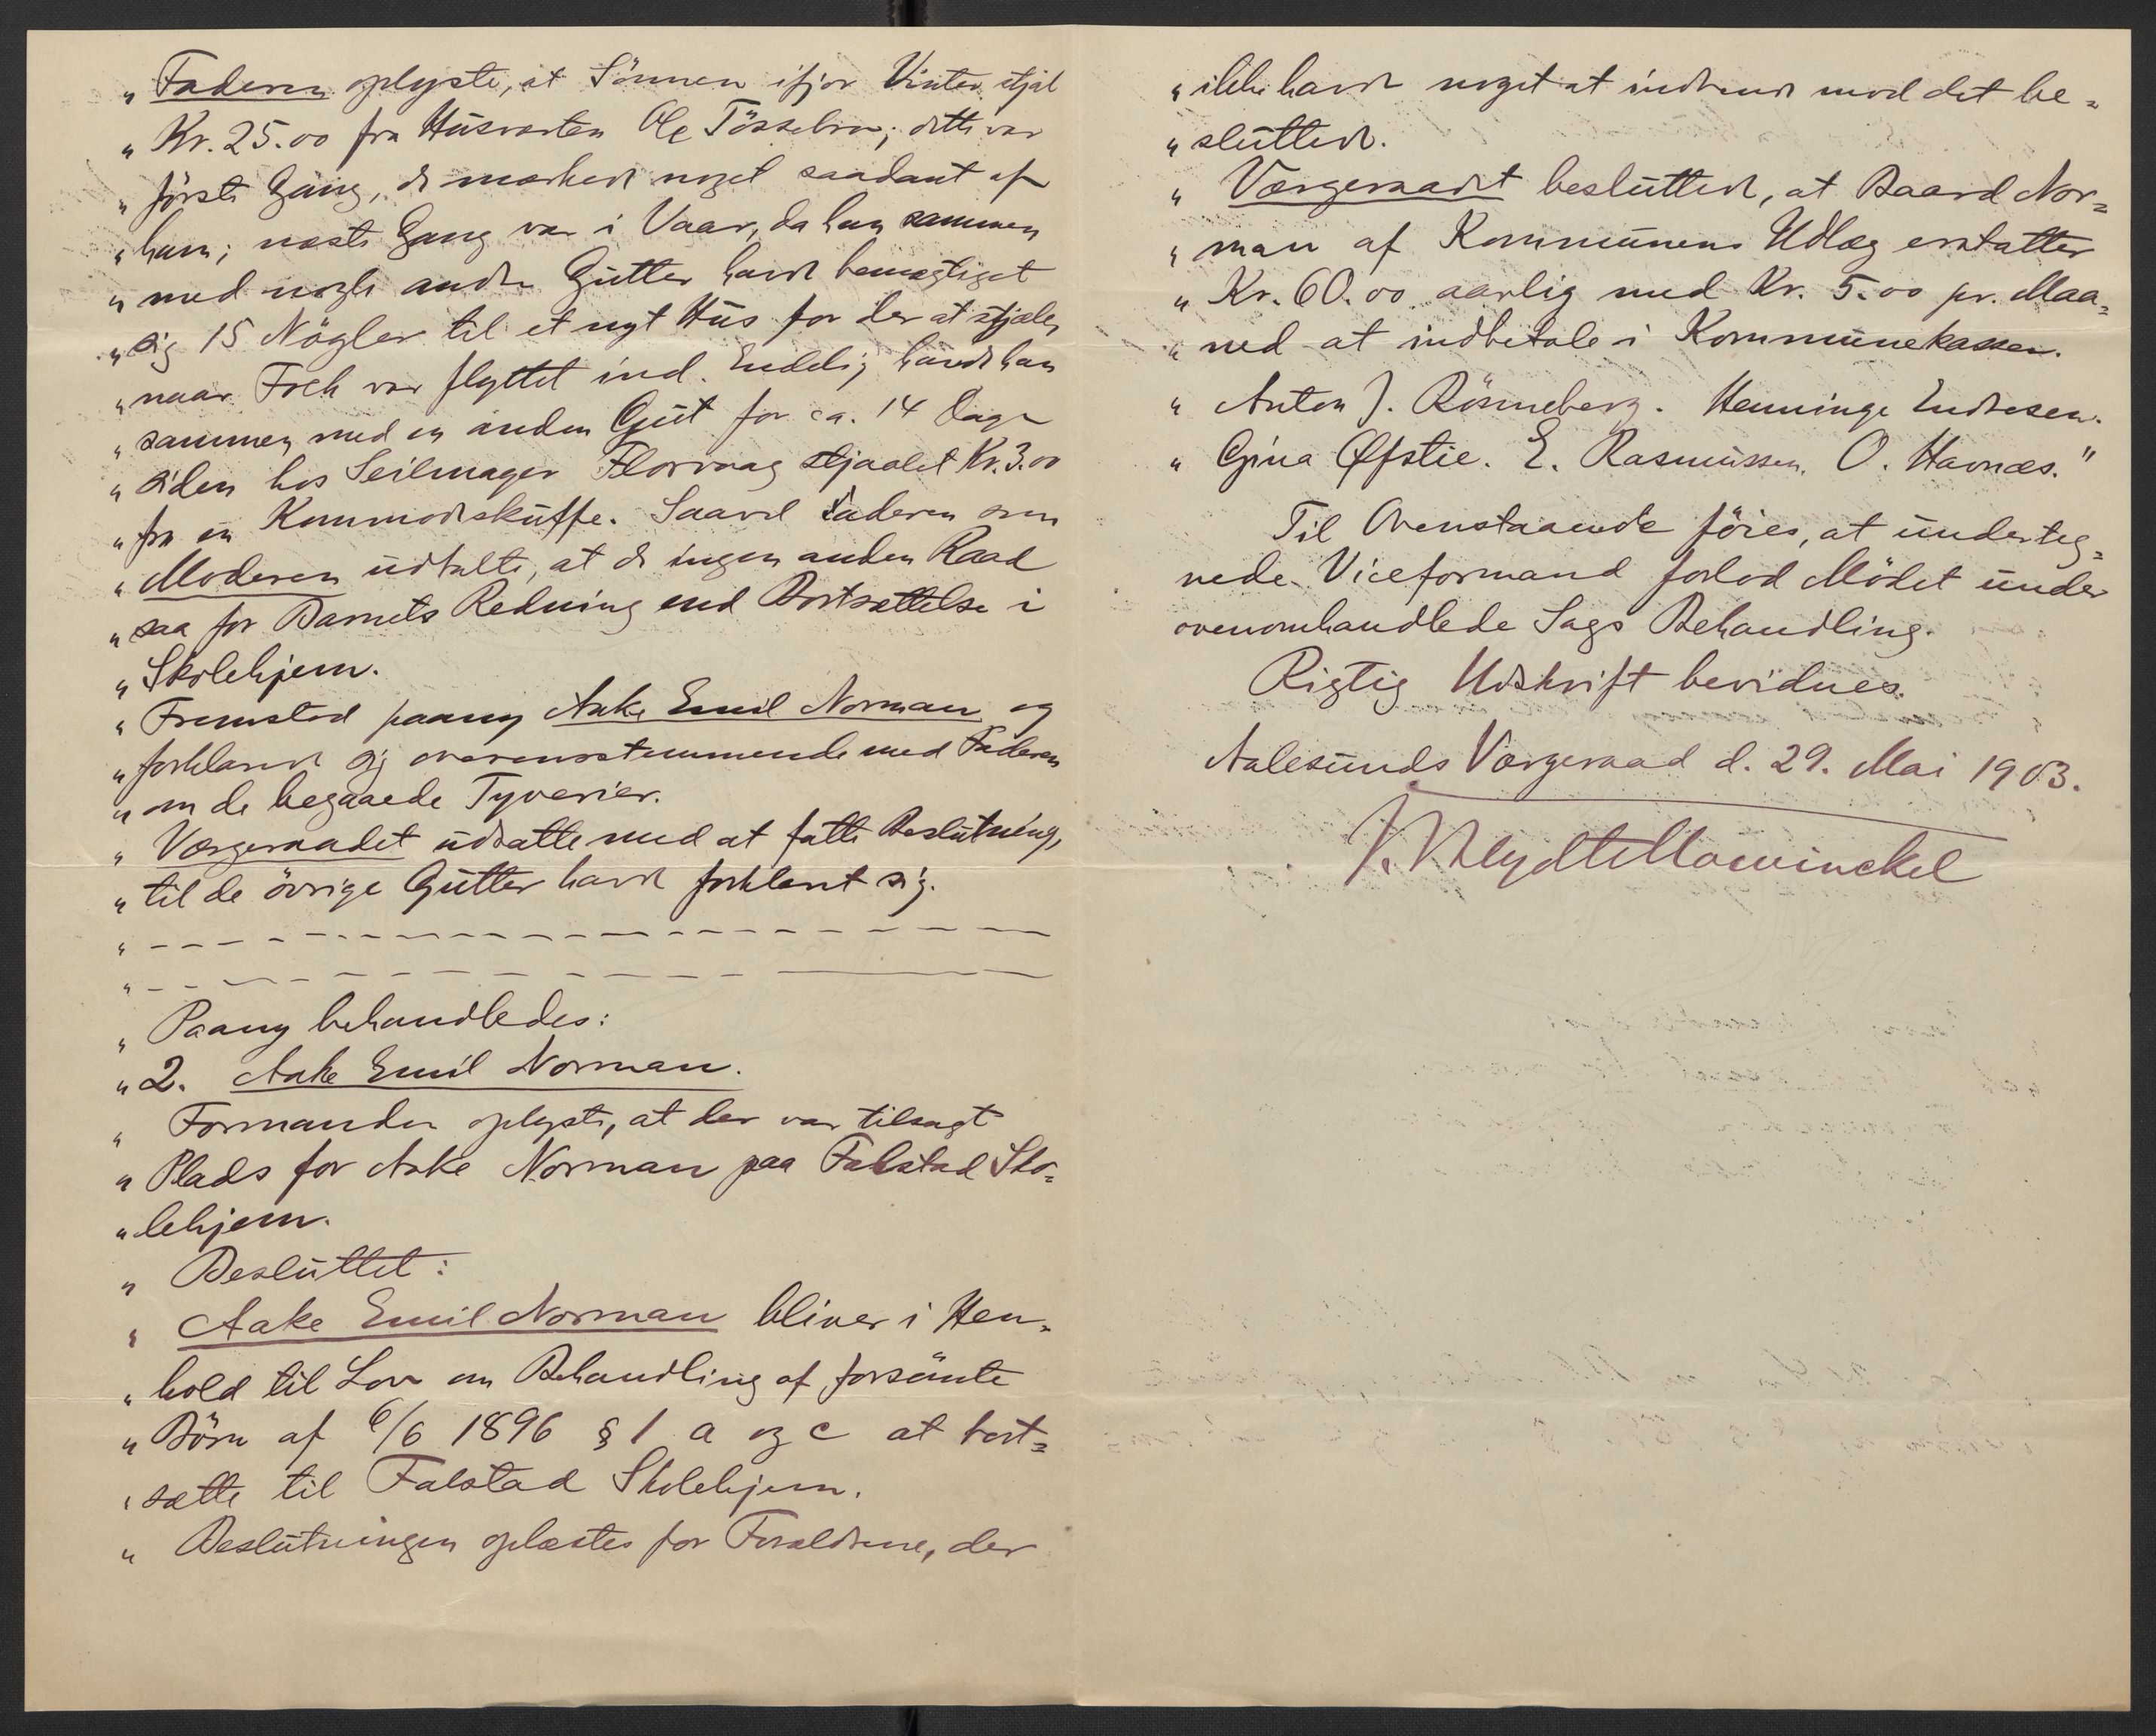 „ Faderen oplyste, at Sönnen ifjor Vinter stjal
„ Kr. 25.00 fra Husverten Ole Tösseбro; dette var
„ förste Gang, de mærkede noget saadant af
„ ham; næste Gang var i Vaar, da han sammen
„ med nogle andre Gutter havde bemægtiget
„ sig 15 Nögler til et nyt Hus for der at stjæle,
„ naar Folk var flyttet ind. Endelig havde han
„ sammen med en anden Gut for ca. 14 Dage
„ siden hos Seilmager Florvaag stjaalet Kr. 3.00
„ fra en Kommodeskuffe. Saavel Faderen som
„ Moderen udtalte, at de ingen anden Raad
„ saa for Barnets Redning end Bortsættelse i
„ Skolehjem.
„ Fremstod paany Aake Emil Norman og
„ forklarede sig overensstemmende med Faderen
„ om de begaaede Tyverier.
„ Værgeraadet udsatte med at fatte Beslutning,
„ til de övrige Gutter havde forklaret sig.
„ — — — — — — — — — —
„ — — — — — — — — — —
„ Paany behandledes:
„ 2. Aake Emil Norman.
„ Formanden oplyste, at der var tilsagt
„ Plads for Aake Norman paa Falstad Sko=
„ lehjem.
„ Besluttet:
„ Aake Emil Norman bliver i Hen=
„ hold til Lov om Behandling af forsömte
„ Börn af 6/6 1896 § 1 a og c at bort=
„ sætte til Falstad Skolehjem.
„ Beslutningen oplæstes for Forældrene, der
„ ikke havde noget at indvende mod det be=
„ sluttede.
„ Værgeraadet besluttede, at Baard Nor=
„ man af Kommunens Udlæg erstatter
„ Kr. 60.00 aarlig med Kr. 5.00 pr. Maa=
„ ned at indbetale i Kommunekassen.
„ Anton J. Rönneberg. Henninge Endresen.
„ Gina Øfstie. E. Rasmussen. O. Havnæs."
Til Ovenstaaende föies, at underteg=
nede Viceformand forlod Mödet under
ovenomhandlede Sags Behandling.
Rigtig Udskrift bevidnes.
Aalesunds Værgeraad d. 29. Mai 1903.
Mowinckel